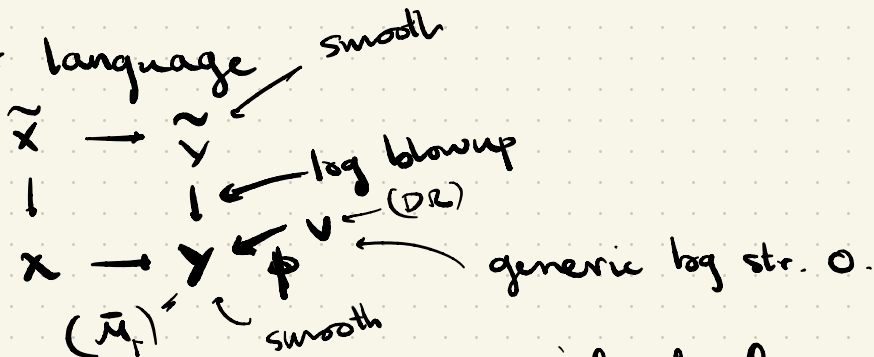 language smooth
X̃ → Ỹ
↓ ↓ ← log blowup
V ← (DR)
X → Y ← ϕ generic log str. 0.
(M̄) smooth